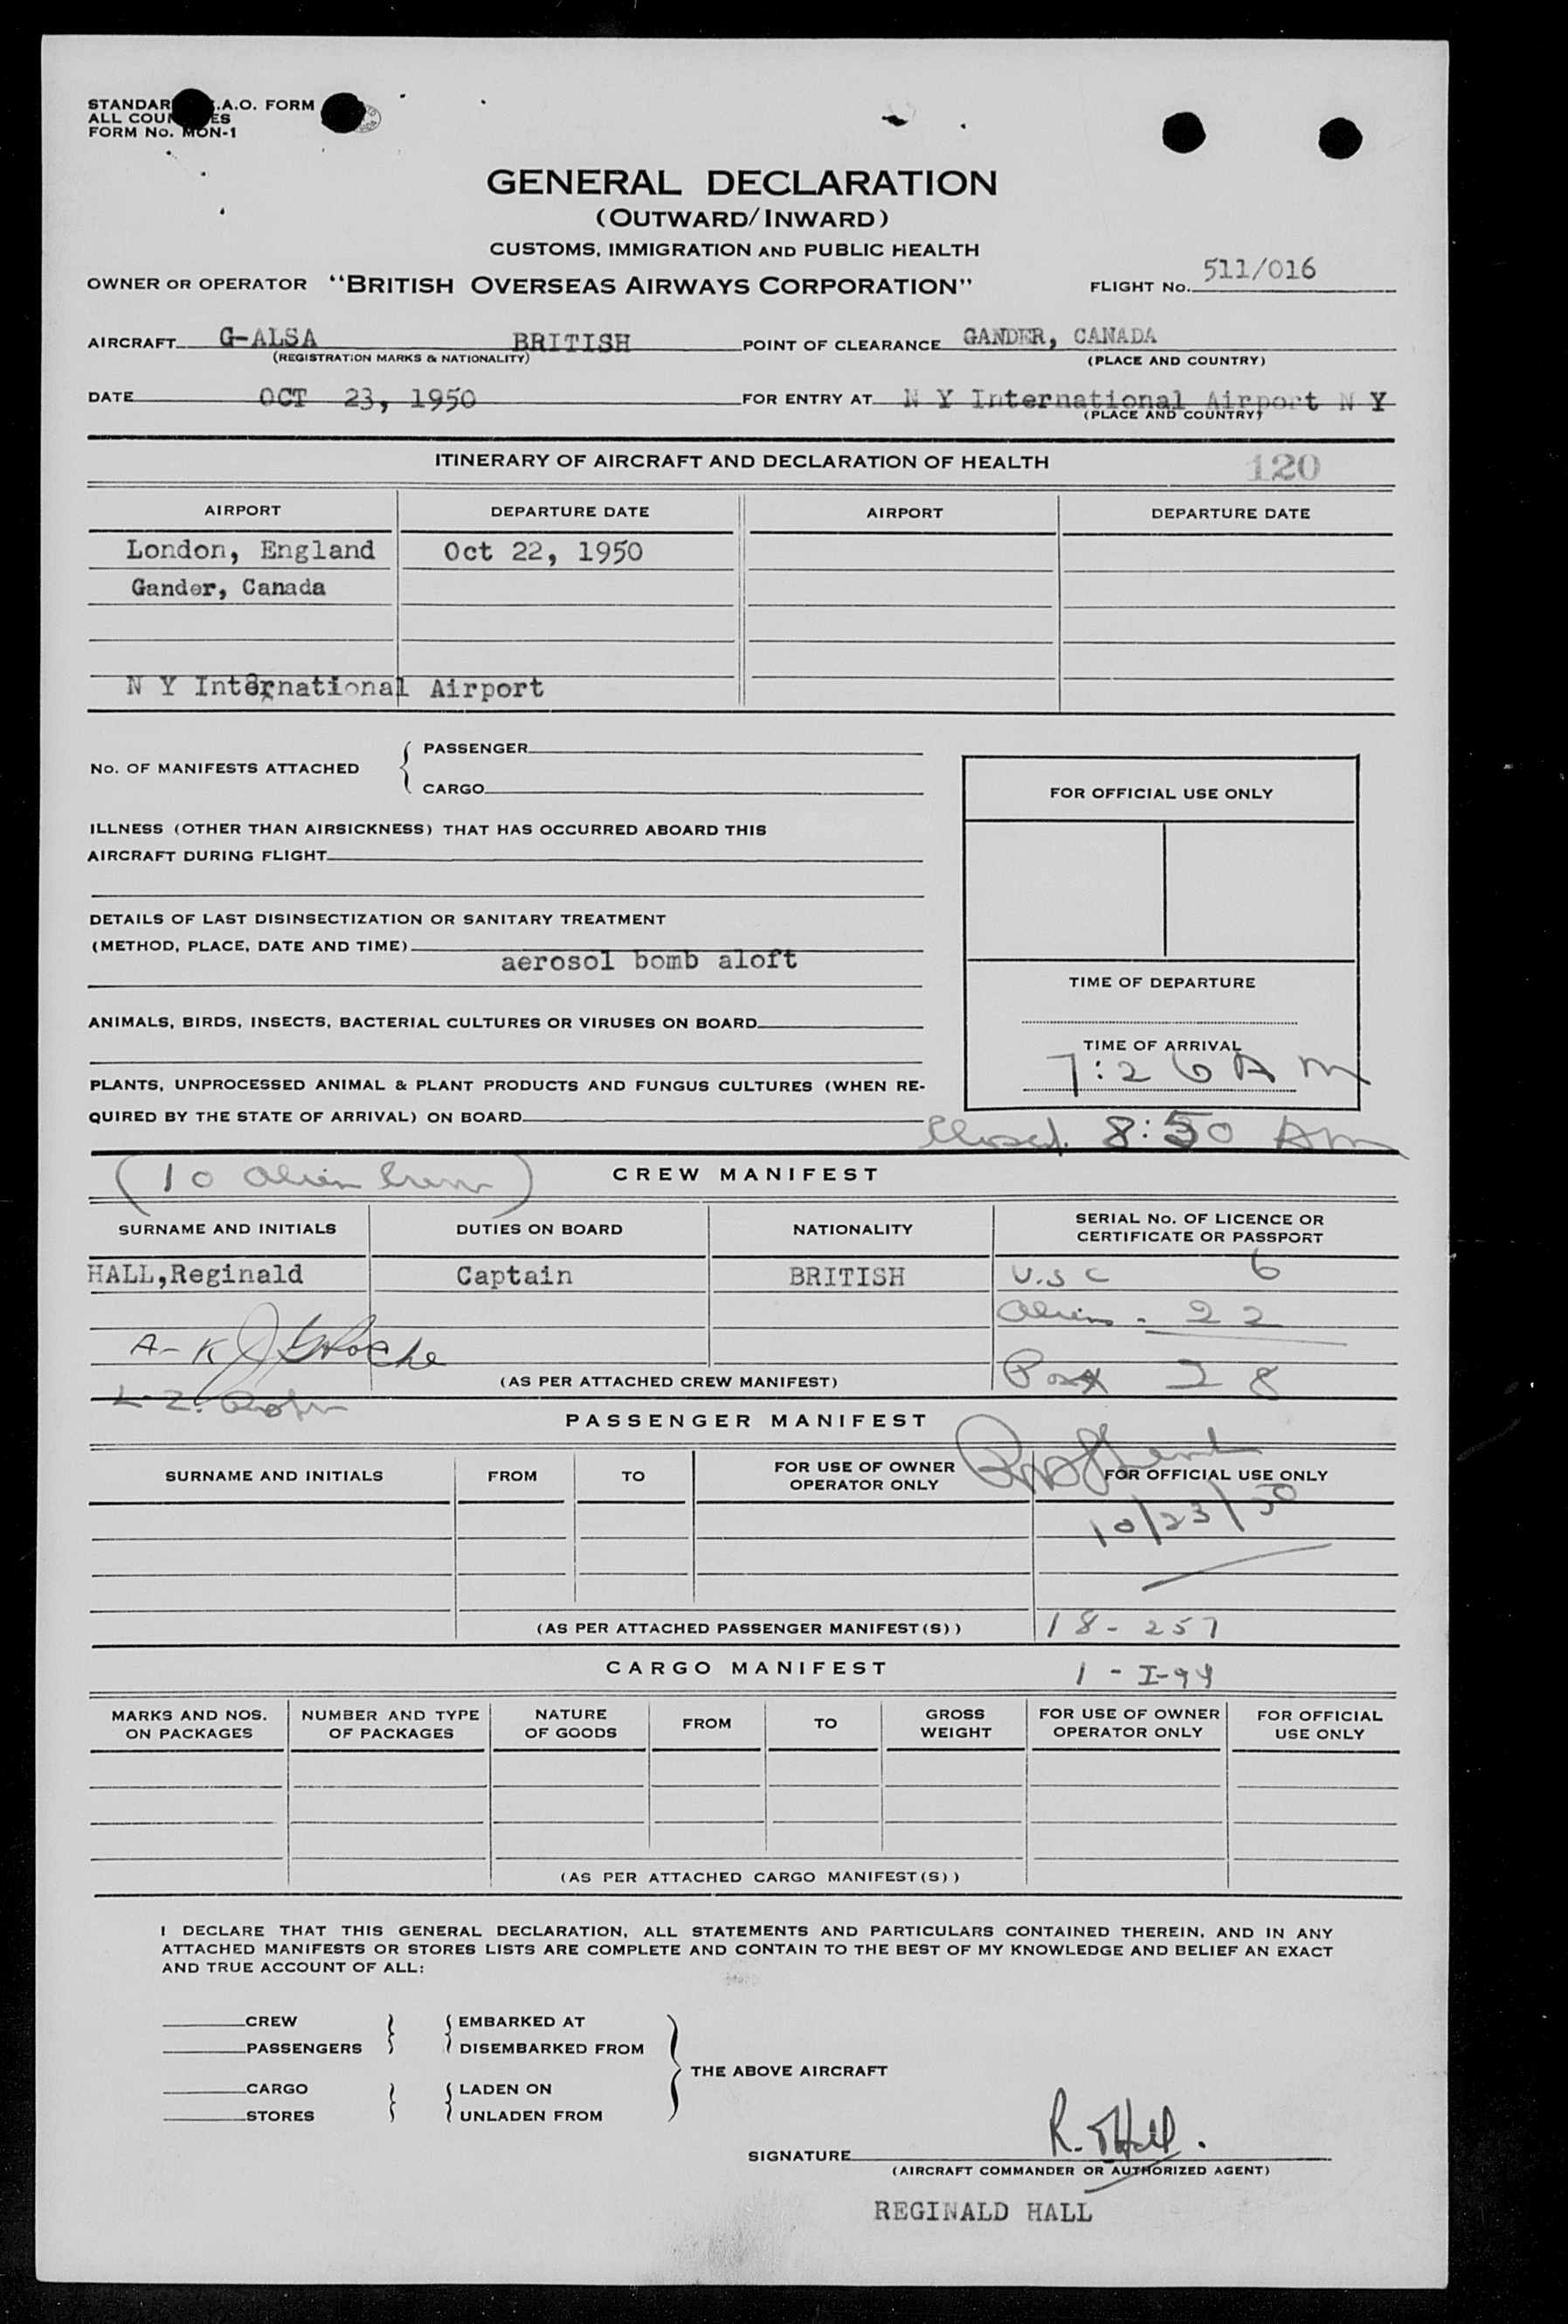 STANDAR .A.O. FORM
ALL COUN ES
FORM No. MON-1
GENERAL DECLARATION
(OUTWARD/INWARD)
CUSTOMS, IMMIGRATION AND PUBLIC HEALTH
OWNER OR OPERATOR "BRITISH OVERSEAS AIRWAYS CORPORATION" FLIGHT No. 511/016
AIRCRAFT G-ALSA BRITISH POINT OF CLEARANCE GANDER, CANADA
(REGISTRATION MARKS & NATIONALITY) (PLACE AND COUNTRY)
DATE OCT 23, 1950 FOR ENTRY AT N Y International Airport N Y
(PLACE AND COUNTRY)
ITINERARY OF AIRCRAFT AND DECLARATION OF HEALTH 120
AIRPORT DEPARTURE DATE AIRPORT DEPARTURE DATE
London, England Oct 22, 1950
Gander, Canada
N Y International Airport
No. OF MANIFESTS ATTACHED { PASSENGER
CARGO
FOR OFFICIAL USE ONLY
ILLNESS (OTHER THAN AIRSICKNESS) THAT HAS OCCURRED ABOARD THIS
AIRCRAFT DURING FLIGHT
DETAILS OF LAST DISINSECTIZATION OR SANITARY TREATMENT
(METHOD, PLACE, DATE AND TIME)
aerosol bomb aloft
TIME OF DEPARTURE
ANIMALS, BIRDS, INSECTS, BACTERIAL CULTURES OR VIRUSES ON BOARD
TIME OF ARRIVAL
7:26 AM
PLANTS, UNPROCESSED ANIMAL & PLANT PRODUCTS AND FUNGUS CULTURES (WHEN RE-
QUIRED BY THE STATE OF ARRIVAL) ON BOARD
Closed. 8:50 Am
(10 Alien Crew) CREW MANIFEST
SURNAME AND INITIALS DUTIES ON BOARD NATIONALITY SERIAL No. OF LICENCE OR
CERTIFICATE OR PASSPORT
HALL,Reginald Captain BRITISH U.S C 6
Alien - 22
A-K
(AS PER ATTACHED CREW MANIFEST) 28
L-Z.
PASSENGER MANIFEST
SURNAME AND INITIALS FROM TO FOR USE OF OWNER
OPERATOR ONLY FOR OFFICIAL USE ONLY
10/23/50
(AS PER ATTACHED PASSENGER MANIFEST(S)) 18 - 257
CARGO MANIFEST 1 - I-94
MARKS AND NOS.
ON PACKAGES NUMBER AND TYPE
OF PACKAGES NATURE
OF GOODS FROM TO GROSS
WEIGHT FOR USE OF OWNER
OPERATOR ONLY FOR OFFICIAL
USE ONLY
(AS PER ATTACHED CARGO MANIFEST(S))
I DECLARE THAT THIS GENERAL DECLARATION, ALL STATEMENTS AND PARTICULARS CONTAINED THEREIN, AND IN ANY
ATTACHED MANIFESTS OR STORES LISTS ARE COMPLETE AND CONTAIN TO THE BEST OF MY KNOWLEDGE AND BELIEF AN EXACT
AND TRUE ACCOUNT OF ALL:
CREW EMBARKED AT
PASSENGERS DISEMBARKED FROM
THE ABOVE AIRCRAFT
CARGO LADEN ON
STORES UNLADEN FROM
SIGNATURE R. Hall.
(AIRCRAFT COMMANDER OR AUTHORIZED AGENT)
REGINALD HALL